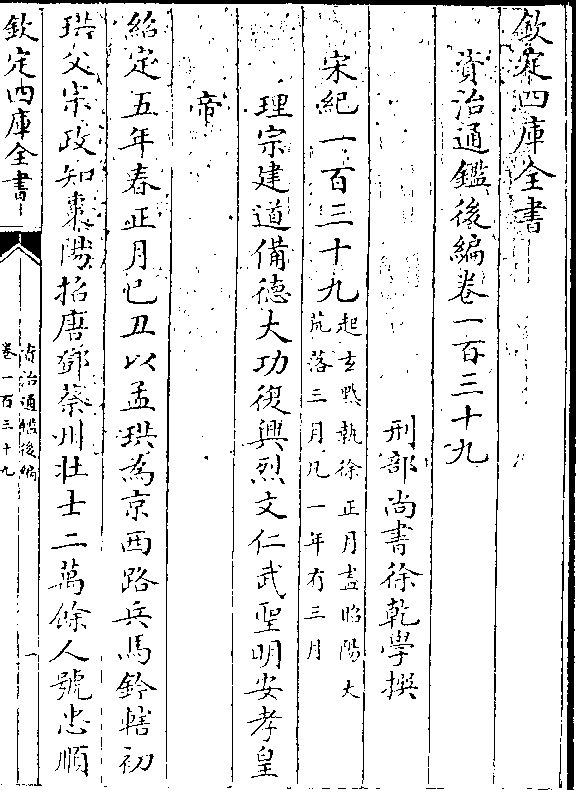 欽定四庫全書
資治通鑑後編卷一百三十九
刑部尚書徐乾學撰
宋紀一百三十九起玄黓執徐正月盡昭陽大
荒落三月凡一年有三月
理宗建道備德大功復興烈文仁武聖明安孝皇
帝
紹定五年春正月己丑以孟珙為京西路兵馬鈐轄初
珙父宗政知棗陽招唐鄧蔡州壯士二萬餘人號忠順
欽定四庫全書
資治通鑑後編
卷一百三十九
一